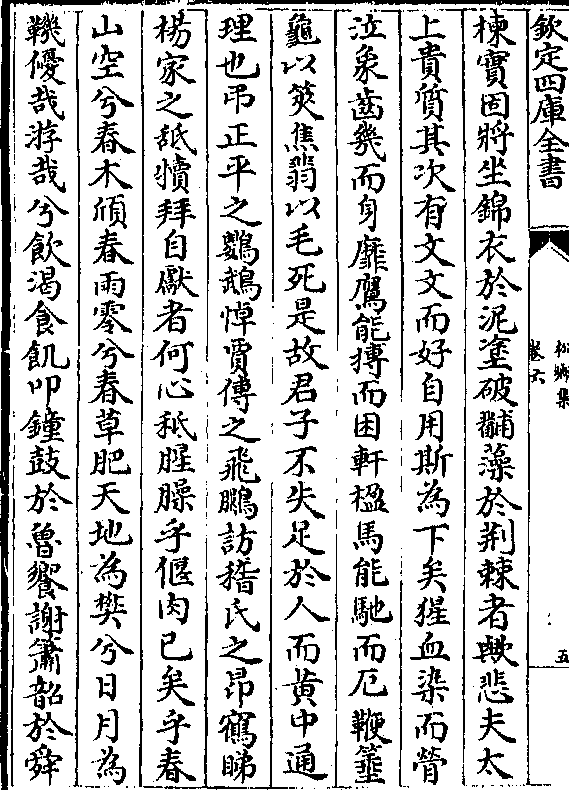 欽定四庫全書
松鄉集
卷六
五
楝實固將坐錦衣於泥塗破黼藻於荆棘者歟悲夫太
上貴質其次有文文而好自用斯為下矣猩血染而膋
泣象齒幾而身靡鷹能搏而困軒楹馬能馳而厄鞭箠
龜以筴焦翡以毛死是故君子不失足於人而黄中通
理也弔正平之鸚鵡悼賈傅之飛鵩訪嵇氏之昂鶴睇
楊家之舐犢拜自獻者何心秪腥臊乎偃肉已矣乎春
山空兮春木頎春雨零兮春草肥天地為樊兮日月為
鞿優哉游哉兮飲渴食飢叩鐘鼓於魯饗謝簫韶於舜